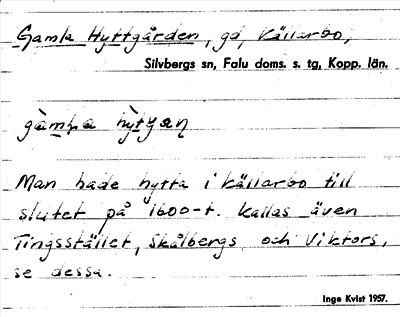 Gamla Hyttgården, gd, Källarbo,
Silvbergs sn, Falu doms. s. tg, Kopp. län.
gàmla hỳtgaη
Man hade hytta i Källarbo till
slutet på 1600-t. Kallas även
Tingsstället, Skålbergs och Viktors,
se dessa.
Inge Kvist 1957.